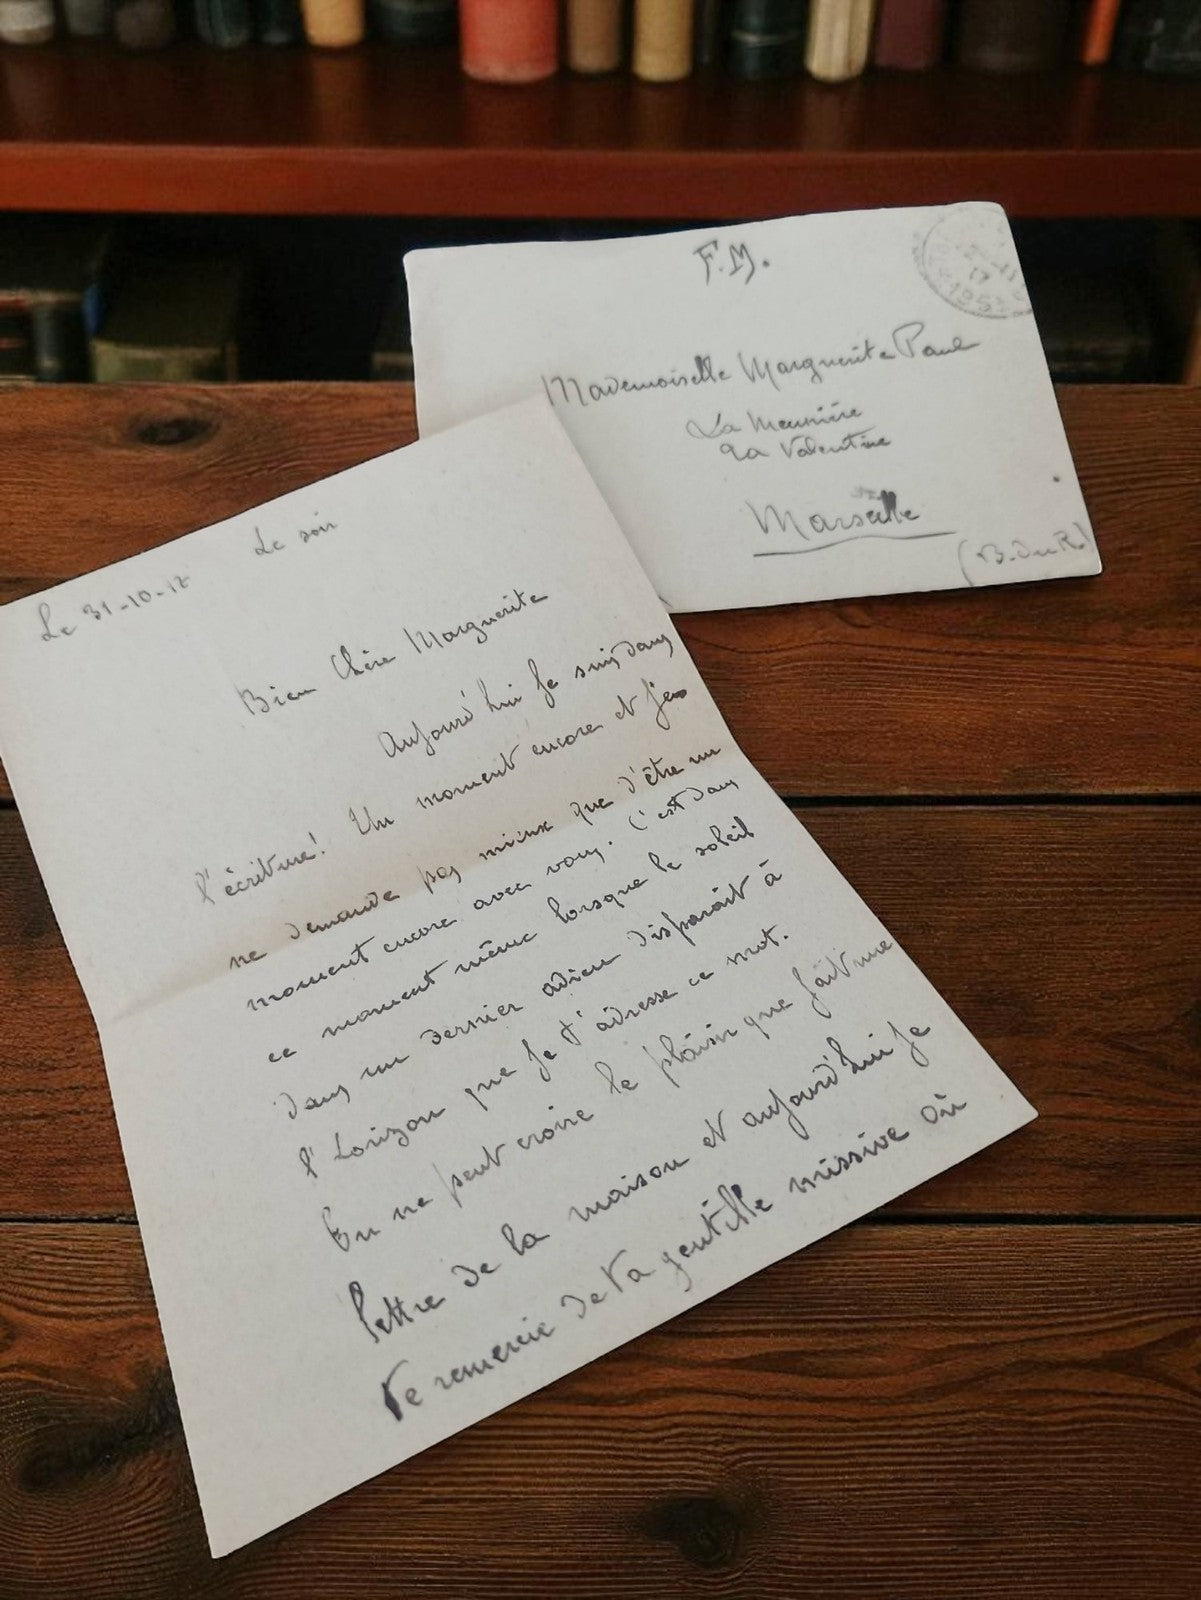 F.M.
Mademoiselle Marguerite Paul
La Meunière
La Valentine
Marseille
(B. du R.)
Le 31-10-17
Le soir
Bien Chère Marguerite
Aujourd'hui je suis dans
l'écriture! Un moment encore et je
ne demande pas mieux que d'être un
moment encore avec vous. C'est dans
ce moment même lorsque le soleil
dans un dernier adieu disparait à
l'horizon que je t'adresse ce mot.
Tu ne peut croire le plaisir que fait une
lettre de la maison et aujourd'hui je
te remercie de ta gentille missive où